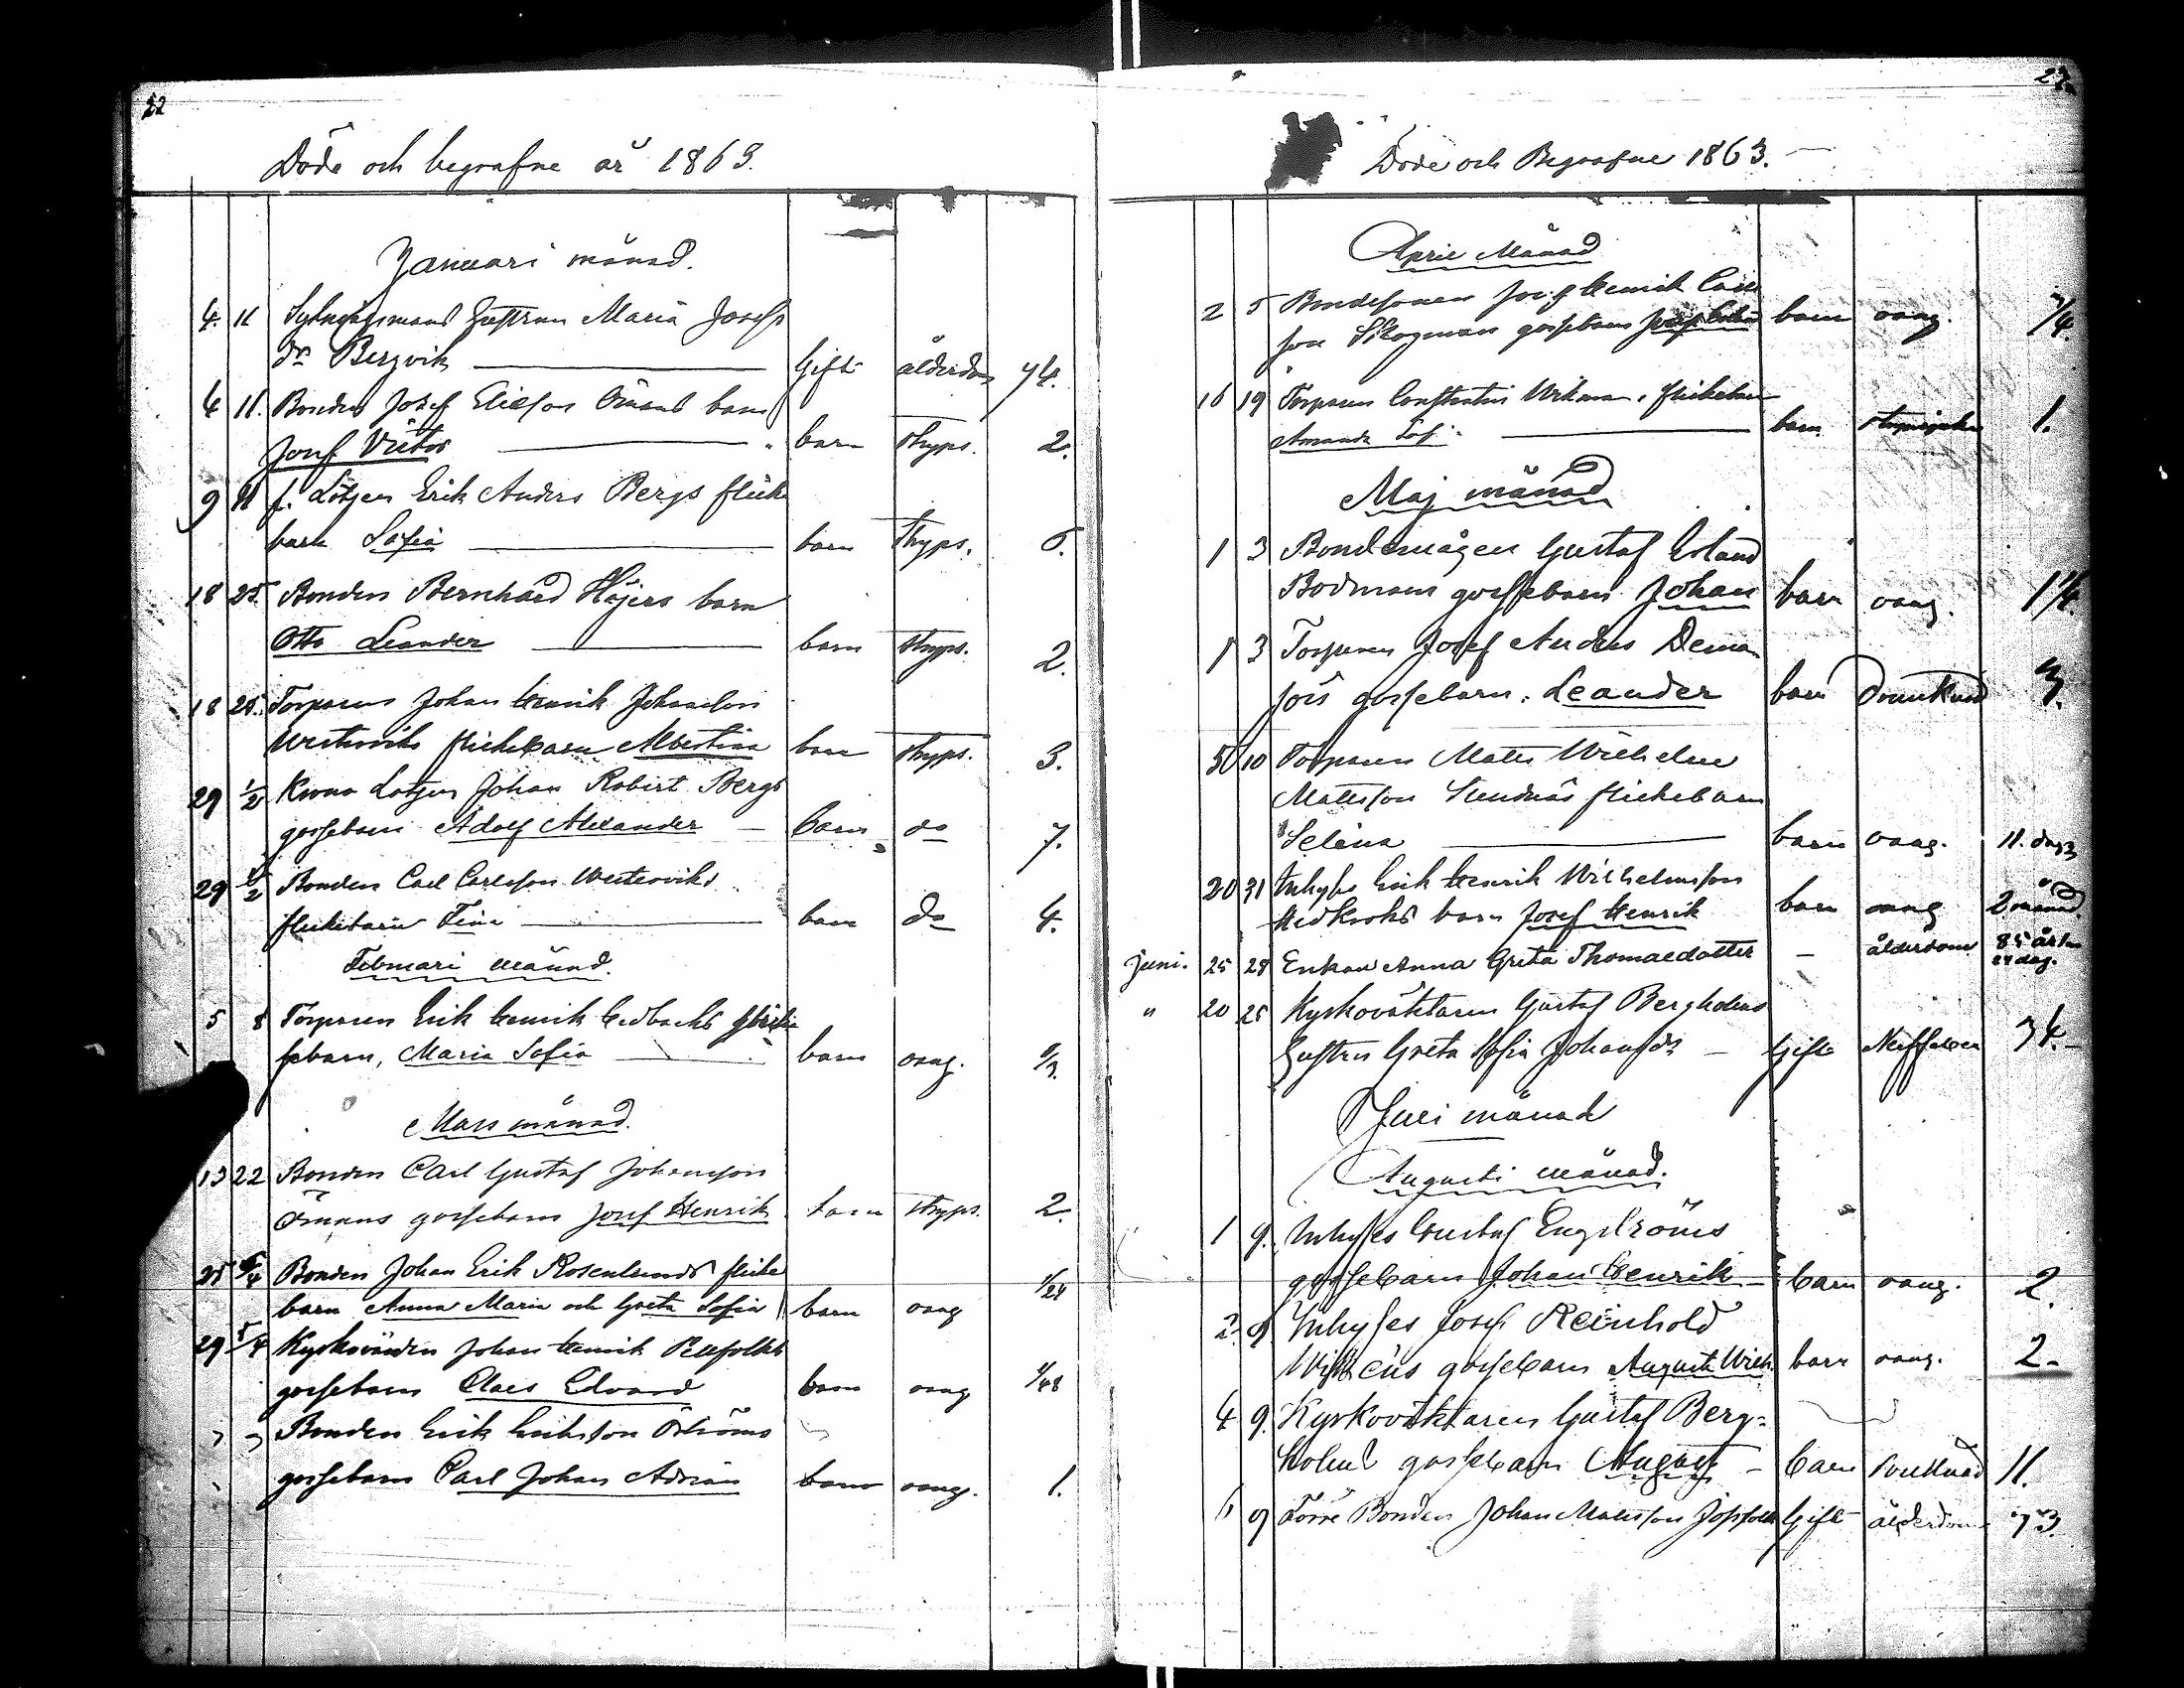 22
Döde och begrafne år 1863.
Januari månad.
4. 11 Sytningsmans hustrun Maria Josefs
dr Bergvik Gift ålderdom 74.
4 11. Bonden Josef Eliesson Ömans barn
Josef Victor barn Stryps. 2.
9 11 f. Lotsen Erik Anders Bergs flicke
barn Sofia barn Stryps. 6.
18 25. Bonden Bernhard Höjers barn
Otto Leander barn stryps. 2.
18 25. Torparens Johan Henrik Johansson
Westerviks flickebarn Albertina barn stryps. 3.
29 1/2 Krono Lotsen Johan Robert Bergs
gossebarn Adolf Alexander barn do 7.
29 1/2 Bonden Carl Carlsson Westerviks
flickebarn Fina barn do 4.
Februari månad.
5 8 Torparen Erik Henrik Hedbacks
sebarn, Maria Sofia barn oang.
Mars månad.
13 22 Bonden Carl Gustaf Johansson
Ömans gossebarn Josef Henrik barn stryps. 2.
25 5/4 Bonden Johan Erik Rosenlunds flicke
barn Anna Maria och Greta Sofia barn oang 1/24
29 5/4 Kyrkovärden Johan Henrik
gossebarn Claes Edvard barn oang 1/48
Bonden Erik Eriksson Öströms
gossebarn Carl Johan Adrian barn oang. 1.
23
Döde och Begrafne 1863.
April Månad
2 5 Bondesonen Josef Henrik Carls
son Skogman gossebarn barn oang. 1/4.
16 19 Torparen Constantin Wikman flickebarn
Amanda Sof. barn strypsjukan 1.
Maj månad
1 3 Bondemågen Gustaf Erland
Bodmans gossebarn Johan barn oang. 1 1/4
1 3 Torparen Josef Anders Deman
fors gossebarn. Leander barn Drunknad 3.
5 10 Torparen Matts Wilhelm
Mattsson Sundnäs flickebarn
Selina barn oang. 11. dagar
20 31 Inhyses Erik Henrik Wilhelmsson
Hedkroks barn Josef Henrik barn oang 2 månad.
Juni. 25 28 Enkan Anna Greta Thomaedotter – ålderdom 85 år 1 m
24 dag.
" 20 28 Kyrkoväktaren Gustaf Bergholms
hustru Greta Sofia Johansdr – Gift 34.
Juli månad
Augusti månad.
1 9. Inhyses Gustaf Engströms
gossebarn Johan Henrik – barn oang. 2.
2. 9 Inhyses Josef Reinhold
gossebarn August Wilh. barn oang. 2.
4 9. Kyrkoväktaren Gustaf Berg-
holms gossebarn August – barn Drunknad 11.
6 9 Förre Bonden Johan Mattsson Gift ålderdom 73.